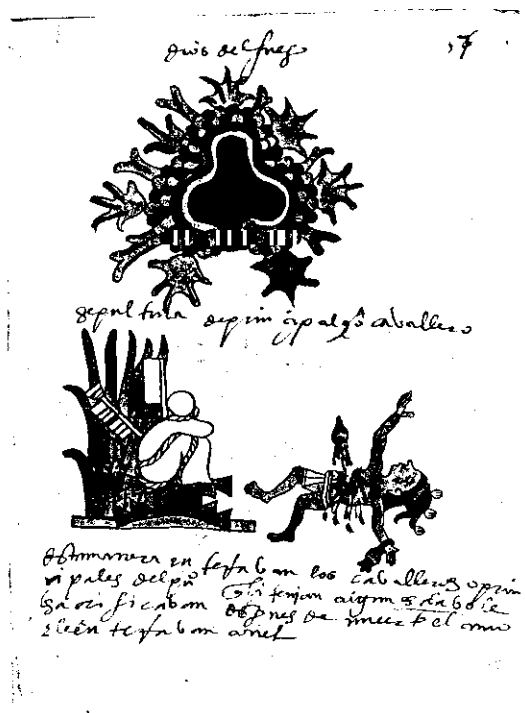 dios del fuego
17
sepultura de principal o cavallero
desta manera enterravan los cavalleros o prin
cipales del pu° si tenian algun esclavo le
sacrificavan despues de muerto el
e le enterravan con el